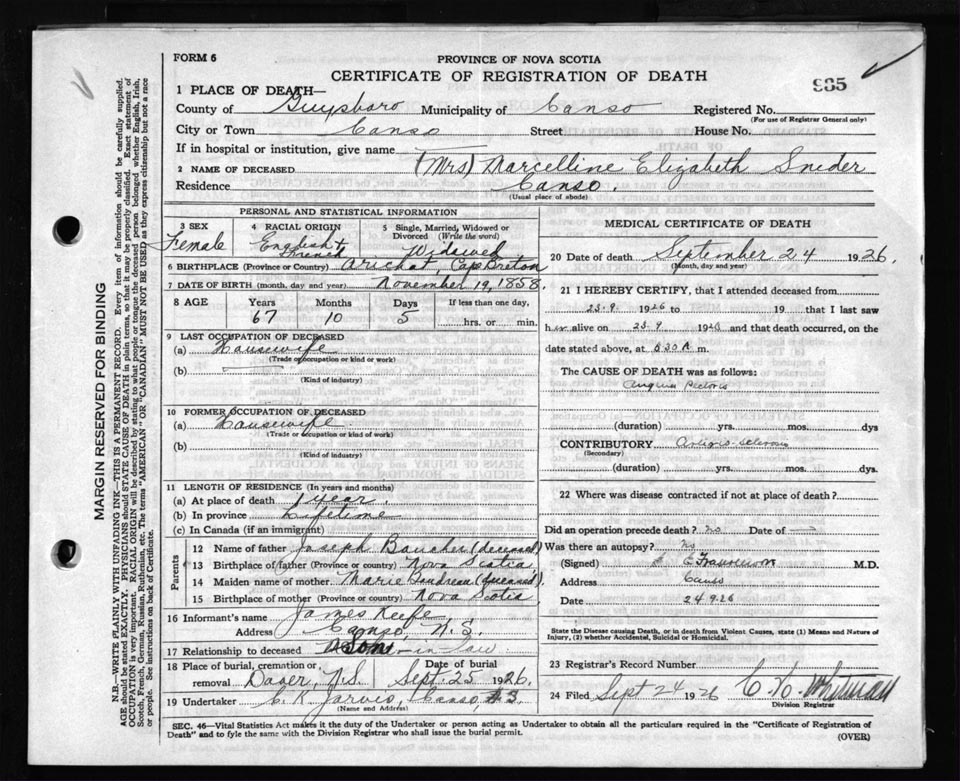 FORM 6
PROVINCE OF NOVA SCOTIA
CERTIFICATE OF REGISTRATION OF DEATH
935
1 PLACE OF DEATH—
County of Guysboro Municipality of Canso Registered No.
(For use of Registrar General only)
City or Town Canso Street House No.
If in hospital or institution, give name
2 NAME OF DECEASED (Mrs) Marcelline Elizabeth Snider
Residence Canso.
(Usual place of abode)
PERSONAL AND STATISTICAL INFORMATION
3 SEX 4 RACIAL ORIGIN 5 Single, Married, Widowed or Divorced (Write the word)
Female English + French Widowed
6 BIRTHPLACE (Province or Country) Arichat, Cape Breton
7 DATE OF BIRTH (month, day and year) November 19, 1858.
8 AGE Years Months Days If less than one day,
67 10 5 hrs. or min.
9 LAST OCCUPATION OF DECEASED
(a) Housewife
(Trade or occupation or kind of work)
(b)
(Kind of industry)
10 FORMER OCCUPATION OF DECEASED
(a) Housewife
(Trade or occupation or kind of work)
(b)
(Kind of industry)
11 LENGTH OF RESIDENCE (In years and months)
(a) At place of death 1 year.
(b) In province Lifetime
(c) In Canada (if an immigrant)
Parents
12 Name of father Joseph Boucher (deceased)
13 Birthplace of father (Province or country) Nova Scotia,
14 Maiden name of mother Marie (deceased).
15 Birthplace of mother (Province or country) Nova Scotia
16 Informant's name James Keefe
Address Canso, N.S.
17 Relationship to deceased Son-in-law
18 Place of burial, cremation, or removal Dover, N.S. Date of burial Sept. 25 1926.
19 Undertaker C. K. Jarvis, Canso N.S.
(Name and Address)
MEDICAL CERTIFICATE OF DEATH
20 Date of death September 24 1926.
(Month, day and year)
21 I HEREBY CERTIFY, that I attended deceased from
23-9. 1926 to 19 that I last saw
her alive on 23-9 1926 and that death occurred, on the
date stated above, at 630 A m.
The CAUSE OF DEATH was as follows:
Angina Pectoris
(duration) yrs. mos. dys
CONTRIBUTORY Arterio-sclerosis
(Secondary)
(duration) yrs. mos. dys.
22 Where was disease contracted if not at place of death?
Did an operation precede death? no Date of
Was there an autopsy? no
(Signed) M.D.
Address Canso
Date 24.9.26
State the Disease causing Death, or in death from Violent Causes, state (1) Means and Nature of Injury, (2) whether Accidental, Suicidal or Homicidal.
23 Registrar's Record Number
24 Filed Sept 24 1926 C. H. Whitman
Division Registrar
SEC. 46—Vital Statistics Act makes it the duty of the Undertaker or person acting as Undertaker to obtain all the particulars required in the "Certificate of Registration of
Death" and to fyle the same with the Division Registrar who shall issue the burial permit.
(OVER)
MARGIN RESERVED FOR BINDING
N.B.—WRITE PLAINLY WITH UNFADING INK—THIS IS A PERMANENT RECORD. Every item of information should be carefully supplied.
AGE should be stated EXACTLY. PHYSICIANS should STATE CAUSE OF DEATH in plain terms, so that it may be properly classified. Exact statement of
OCCUPATION is very important. RACIAL ORIGIN will be described by stating to what people or tongue the deceased person belonged whether English, Irish,
Scotch, French, German, Russian, Ruthenian, etc. The terms "AMERICAN" OR "CANADIAN" MUST NOT BE USED as they express citizenship but not a race
or people. See instructions on back of Certificate.